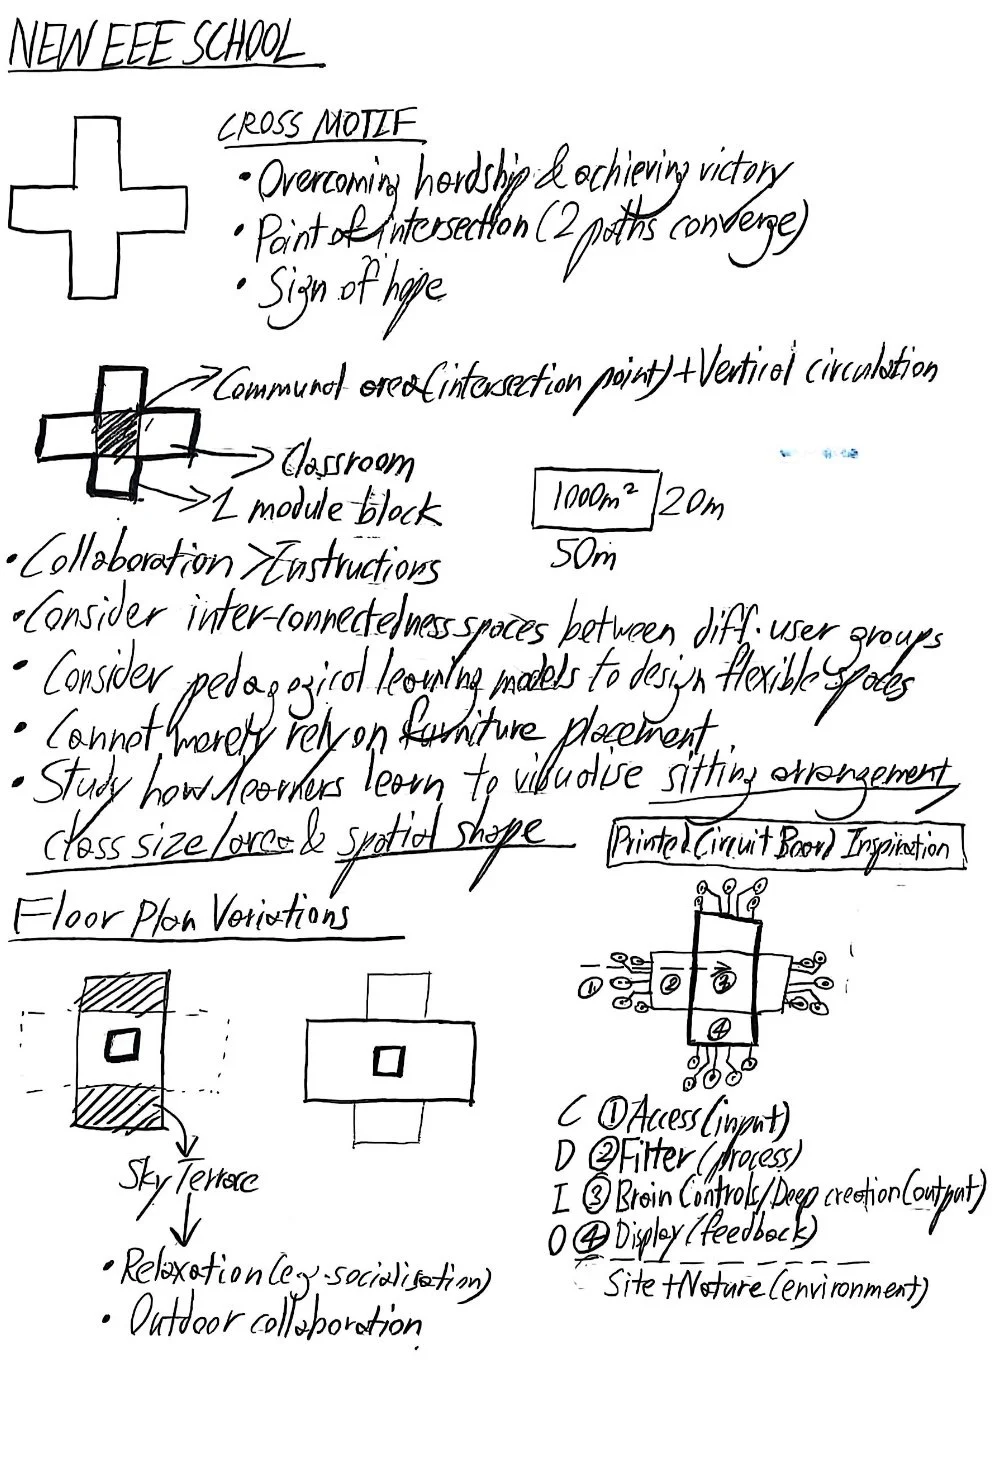 NEW EEE SCHOOL
CROSS MOTIF
• Overcoming hardship & achieving victory
• Point of intersection (2 paths converge)
• Sign of hope
Communal area (intersection point) + Vertical circulation
Classroom
1 module block
1000m² 20m
50m
• Collaboration > Instructions
• Consider inter-connectedness spaces between diff. user groups
• Consider pedagogical learning models to design flexible spaces
• Cannot merely rely on furniture placement
• Study how learners learn to visualise sitting arrangement
class size/area & spatial shape
Printed Circuit Board Inspiration
Floor Plan Variations
① ② ③
④
Sky Terrace
• Relaxation (e.g. socialisation)
• Outdoor collaboration
C ① Access (input)
D ② Filter (process)
I ③ Brain Controls/Deep creation (output)
O ④ Display (feedback)
Site + Nature (environment)